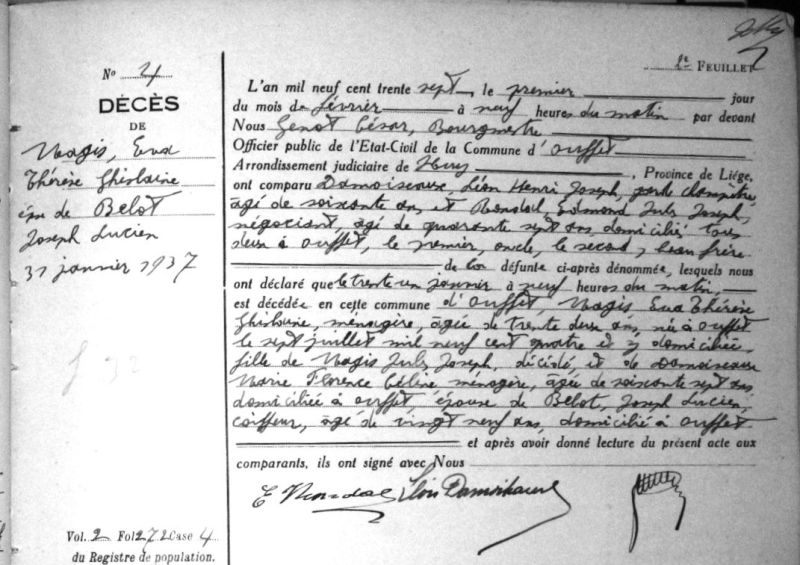 2e FEUILLET
No 4
DÉCÈS
DE
Magis, Eva
Thérèse Ghislaine
épse de Belot
Joseph Lucien
31 janvier 1937
L'an mil neuf cent trente sept, le premier jour
du mois de février à neuf heures du matin par devant
Nous Genot César, Bourgmestre
Officier public de l'Etat-Civil de la Commune d'Ouffet
Arrondissement judiciaire de Huy, Province de Liége,
ont comparu Damoiseaux, Léon Henri Joseph, garde champêtre,
âgé de soixante ans, et Jules Joseph,
négociant, âgé de quarante sept ans, domicilié tous
deux à Ouffet, le premier, oncle, le second, beau frère
de la défunte ci-après dénommée, lesquels nous
ont déclaré que le trente un janvier à neuf heures du matin,
est décédée en cette commune d'Ouffet, Magis Eva Thérèse
Ghislaine, ménagère, âgée de trente deux ans, née à Ouffet
le sept juillet mil neuf cent quatre et y domiciliée,
fille de Magis Jules Joseph, décédé, et de Damoiseaux
Marie Florence Céline ménagère, âgée de soixante sept ans
domiciliée à Ouffet épouse de Belot, Joseph Lucien,
coiffeur, âgé de vingt neuf ans, domicilié à Ouffet
et après avoir donné lecture du présent acte aux
comparants, ils ont signé avec Nous
Vol. 2 Fol 272 Case 4
du Registre de population.